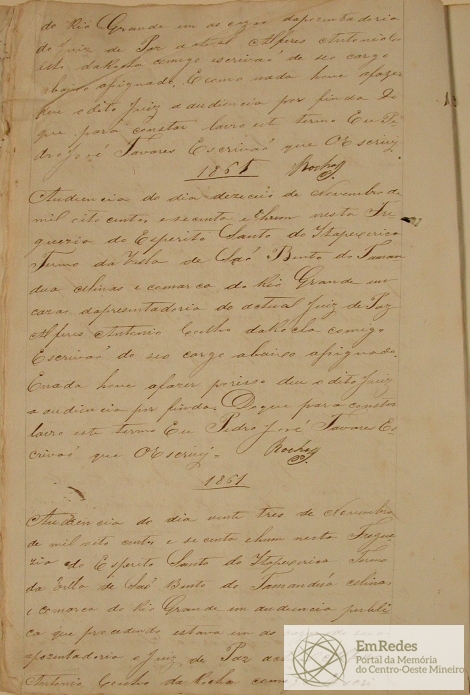 do Rio Grande em as cazas dapozentadoria
do Juiz de Paz actual Alferes Antonio Co
elho daRocha comigo escrivaõ de seo cargo
abaixo asignado, Ecomo nada houve afazer
deu o dito Juiz a audiencia por finda Do
que para constar lavro este termo Eu Pe
dro José Tavares Escrivaõ que OEscrevj
Rocha
1861
Audiencia do dia dezeceis de Novembro de
mil oito centos e secenta e Ehum nesta Fre
guezia do Esperito Santo do Itapexerica
Termo da Villa de Saõ Bento do Taman
dua e Minas e comarca do Rio Grande em
cazas dapozentadoria do actual Juiz de Paz
Alferes Antonio Coelho daRocha comigo
Escrivaõ do seo cargo abaixo asignado.
Enada houve afazer porisso deu o dito Juiz
a audiencia por finda. Doque para constar
lavro este termo Eu Pedro José Tavares Es
crivaõ que OEscrevj.
Rocha
1861
Audiencia do dia vente tres de Novembro
de mil oito centos e se centa ehum nesta Fregue
zia do Esperito Santo do Itapexerica Termo
da Villa de Saõ Bento do Tamanduá e Minas
e comarca do Rio Grande em audiencia publi
ca que procedendo estava em as cazas de sua
apozentadoria o Juiz de Paz
Antonio Coelho da Rocha
EmRedes
Portal da Memória
do Centro-Oeste Mineiro